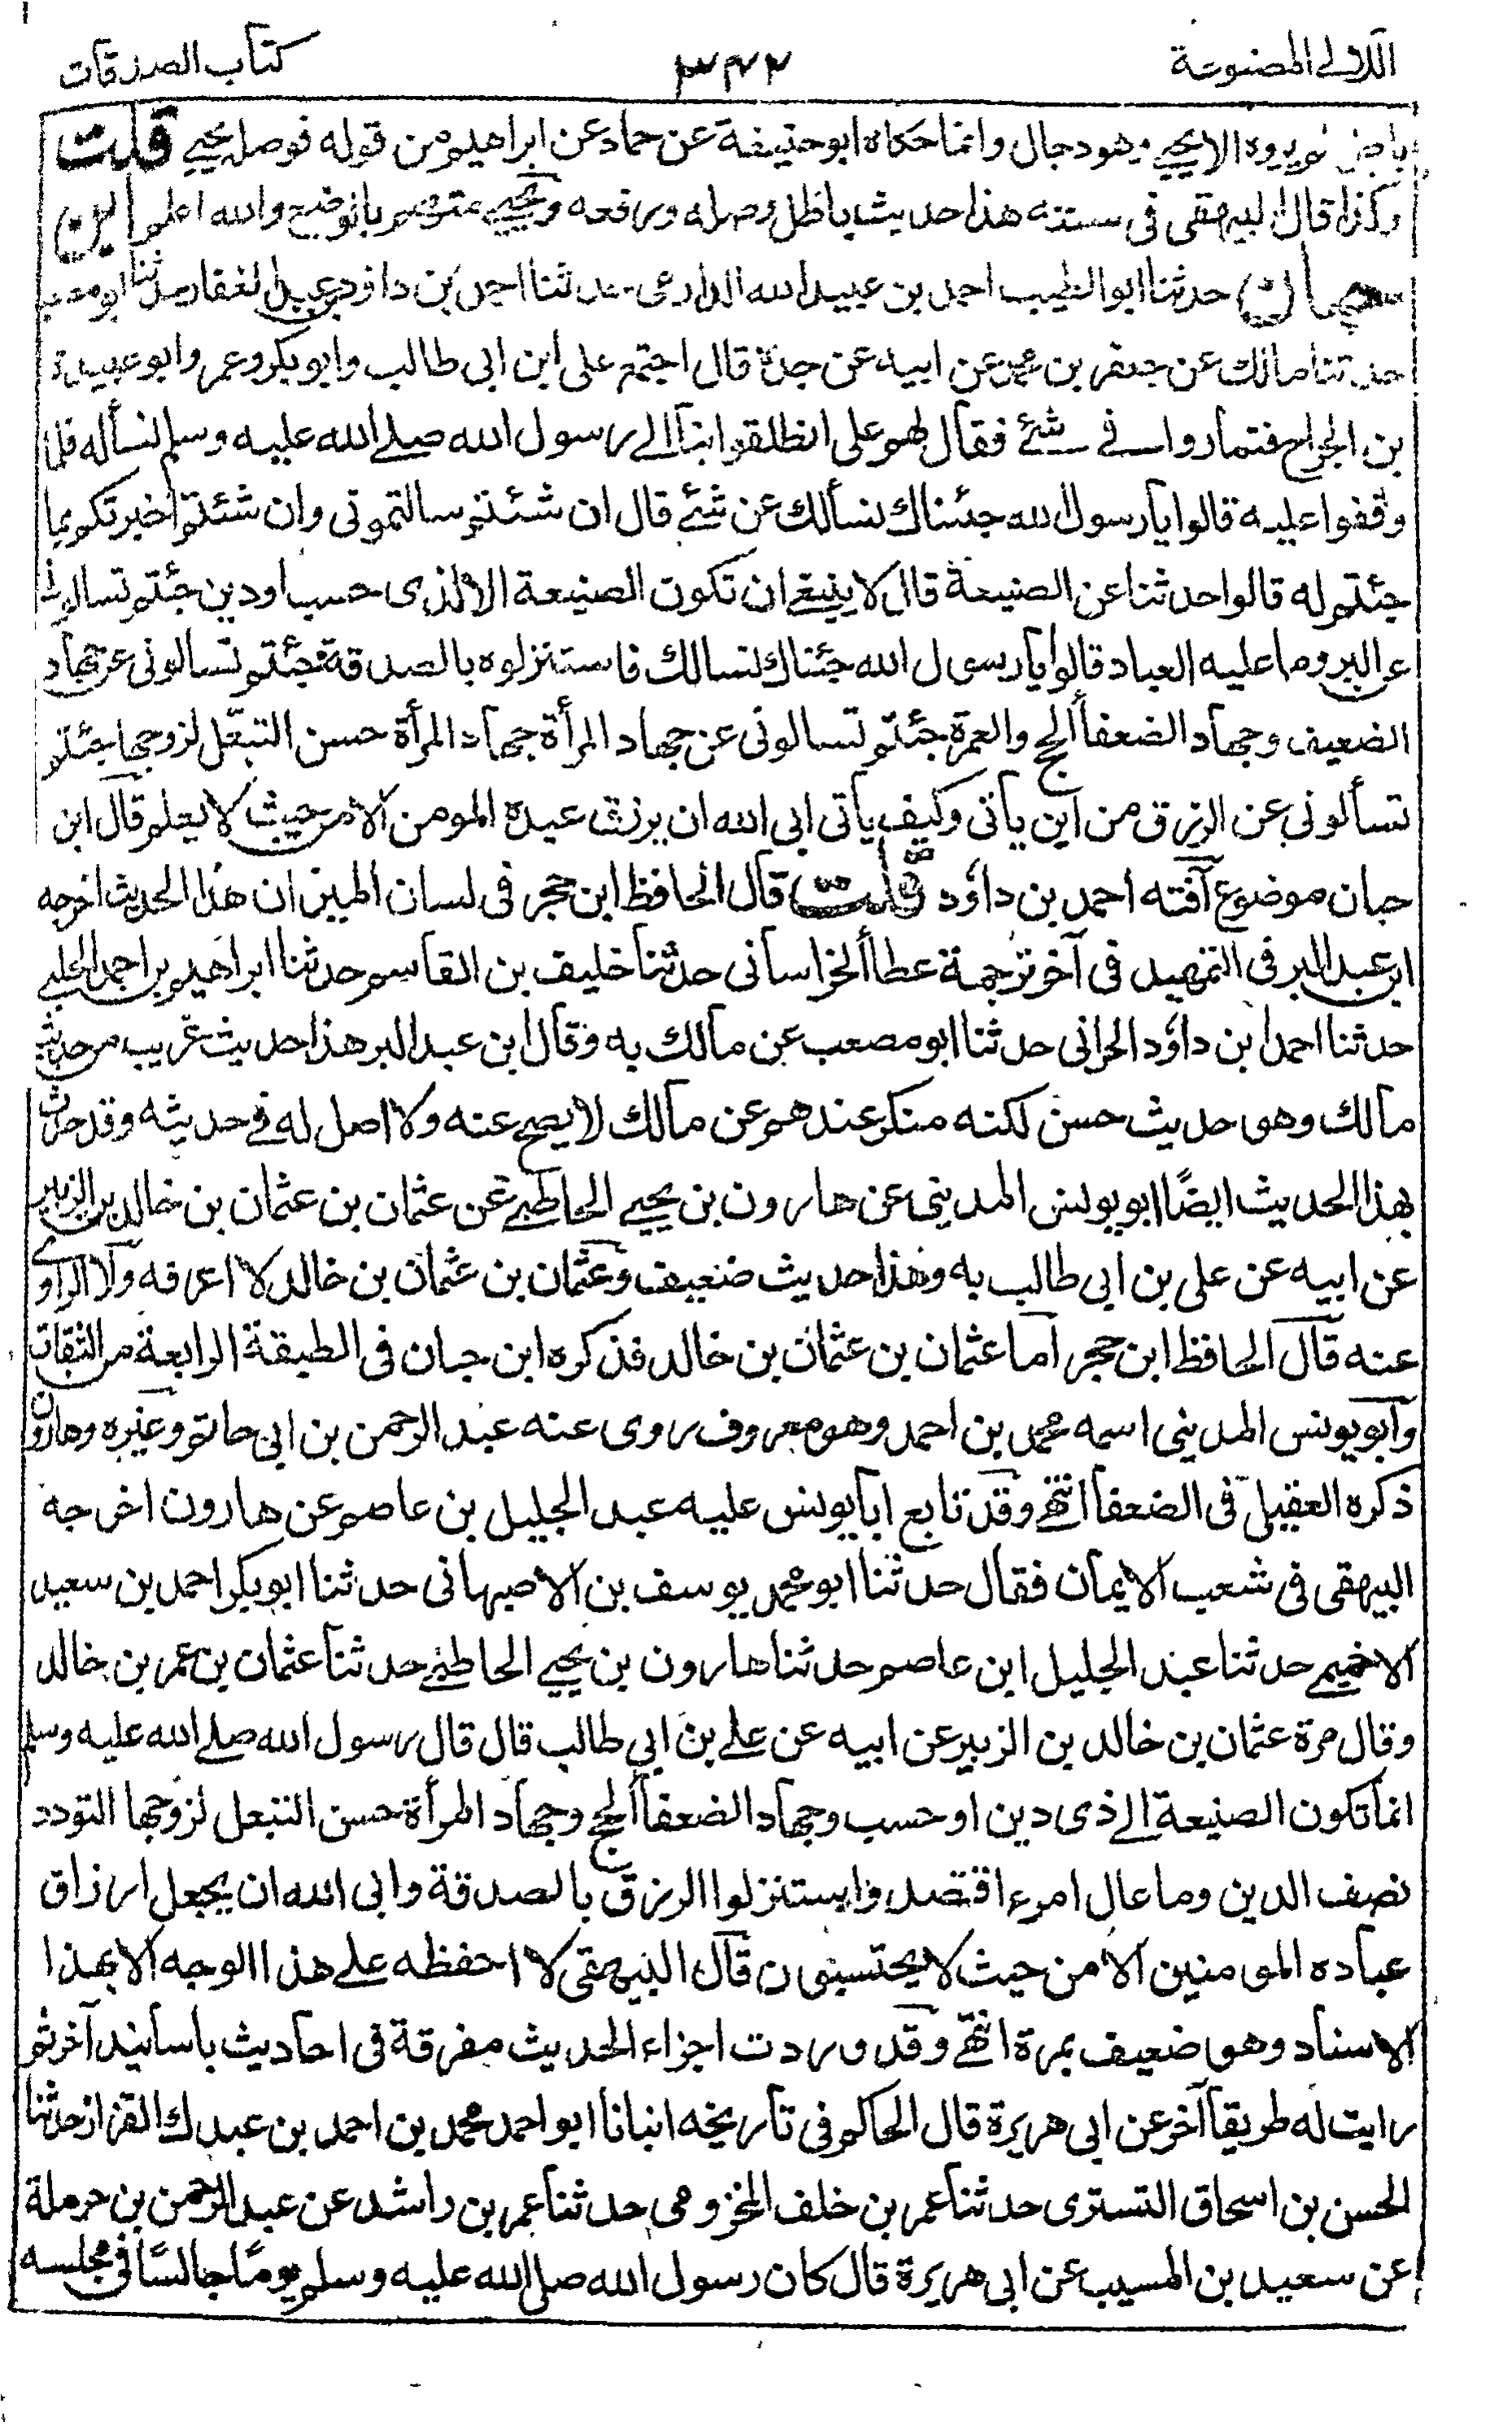 اللآلى المصنوعة
٣٧٢
كتاب الصدقات
لم يروه الا يحيى وهو دجال وانما حكاه ابو حنيفة عن حماد عن ابراهيم من قوله فوصله يحيى قلت
وكذا قال البيهقى فى سننه هذا حديث باطل وصله ورفعه ويحيى متهم بالوضع والله اعلم ابن
حبان حدثنا ابو الطيب احمد بن عبيد الله الدارمى حدثنا احمد بن داؤد بن عبد الغفار حدثنا ابو مصعب
حدثنا مالك عن جعفر بن محمد عن ابيه عن جده قال اجتمع على ابن ابى طالب وابو بكر وعمر وابو عبيدة
بن الجراح فتماروا فى شئ فقال لهم على انطلقوا بنا الى رسول الله صلى الله عليه وسلم نسأله فلما
وقفوا عليه قالوا يا رسول الله جئناك نسالك عن شئ قال ان شئتم سالتمونى وان شئتم اخبرتكم بما
جئتم له قالوا حدثنا عن الصنيعة قال لا ينبغى ان تكون الصنيعة الا لذى حسب او دين جئتم تسالونى
عن البر وما عليه العباد قالوا يا رسول الله جئناك نسالك فاستنزلوه بالصدقة جئتم تسالونى عن جهاد
الضعيف وجهاد الضعفا الحج والعمرة جئتم تسالونى عن جهاد المرأة جهاد المرأة حسن التبعل لزوجها جئتم
تسألونى عن الرزق من اين ياتى وكيف ياتى ابى الله ان يرزق عبده المومن الا من حيث لا يعلم قال ابن
حبان موضوع آفته احمد بن داؤد قلت قال الحافظ ابن حجر فى لسان الميزان هذا الحديث اخرجه
ابن عبد البر فى التمهيد فى آخر ترجمة عطا الخراسانى حدثنا خليف بن القاسم حدثنا ابراهيم بن احمد الحلبى
حدثنا احمد ابن داؤد الحرانى حدثنا ابو مصعب عن مالك به وقال ابن عبد البر هذا حديث غريب من حديث
مالك وهو حديث حسن لكنه منكر عندهم عن مالك لا يصح عنه ولا اصل له فى حديثه وقد حدث
بهذا الحديث ايضًا ابو يونس المدينى عن هارون بن يحيى الحاطبى عن عثمان بن عثمان بن خالد بن الزبير
عن ابيه عن على بن ابى طالب به وهذا حديث ضعيف وعثمان بن عثمان بن خالد لا اعرفه ولا الراوى
عنه قال الحافظ ابن حجر اما عثمان بن عثمان بن خالد فذكره ابن حبان فى الطبقة الرابعة من الثقات
وابو يونس المدينى اسمه محمد بن احمد وهو معروف روى عنه عبد الرحمن بن ابى حاتم وغيره وهارون
ذكره العقيلى فى الضعفا انتهى وقد تابع ابا يونس عليه عبد الجليل بن عاصم عن هارون اخرجه
البيهقى فى شعب الايمان فقال حدثنا ابو محمد يوسف بن الاصبهانى حدثنا ابو بكر احمد بن سعيد
الاخميمى حدثنا عبد الجليل ابن عاصم حدثنا هارون بن يحيى الحاطبى حدثنا عثمان بن عمر بن خالد
وقال مرة عثمان بن خالد بن الزبير عن ابيه عن على بن ابى طالب قال قال رسول الله صلى الله عليه وسلم
انما تكون الصنيعة الى ذى دين او حسب وجهاد الضعفا الحج وجهاد المرأة حسن التبعل لزوجها التودد
نصف الدين وما عال امرء اقتصد واستنزلوا الرزق بالصدقة وابى الله ان يجعل ارزاق
عباده المومنين الا من حيث لا يحتسبون قال البيهقى لا احفظه على هذا الوجه الا بهذا
الاسناد وهو ضعيف بمرة انتهى وقد وردت اجزاء الحديث مفرقة فى احاديث باسانيد آخر ثم
رايت له طريقا آخر عن ابى هريرة قال الحاكم فى تاريخه انبانا ابو احمد محمد بن احمد بن عبدك القزاز حدثنا
الحسن بن اسحاق التسترى حدثنا عمر بن خلف المخزومى حدثنا عمر بن راشد عن عبد الرحمن بن حرملة
عن سعيد بن المسيب عن ابى هريرة قال كان رسول الله صلى الله عليه وسلم يومًا جالسًا فى مجلسه